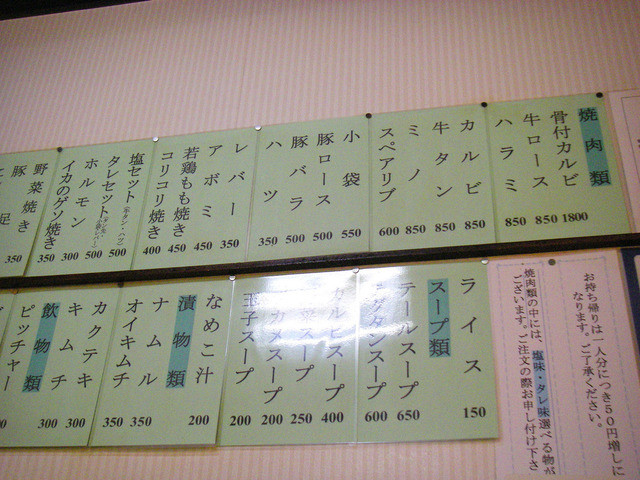 焼肉類
骨付カルビ 1800
牛ロース 850
ハラミ 850
カルビ 850
牛タン 850
ミノ 850
スペアリブ 600
小袋 550
豚ロース 500
豚バラ 500
ハツ 350
レバー 350
アボミ 450
若鶏もも焼き 450
コリコリ焼き 400
塩セット(牛タン・ハツ) 500
タレセット 500
ホルモン 300
イカのゲソ焼き 350
野菜焼き 350
豚
足
お持ち帰りは一人分につき50円増しに
なります。ご了承ください。
焼肉類の中には、塩味・タレ味選べる物が
ございます。ご注文の際お申し付け下さ
ライス 150
スープ類
テールスープ 650
グタンスープ 600
カルビスープ 400
スープ 250
カメスープ 200
玉子スープ 200
なめこ汁 200
漬物類
ナムル 350
オイキムチ 350
カクテキ 300
キムチ 300
飲物類
ピッチャー